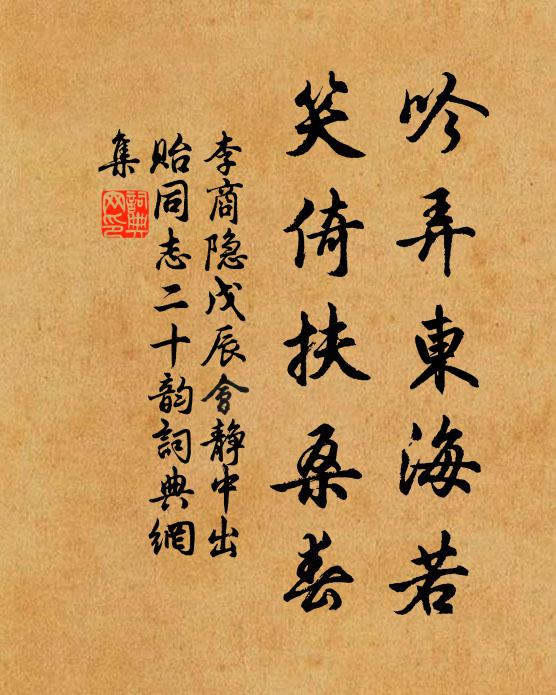 吟弄東海若
笑倚扶桑春
李商隐戊辰會静中出
贻同志二十韵詞典網
集
詞典网印